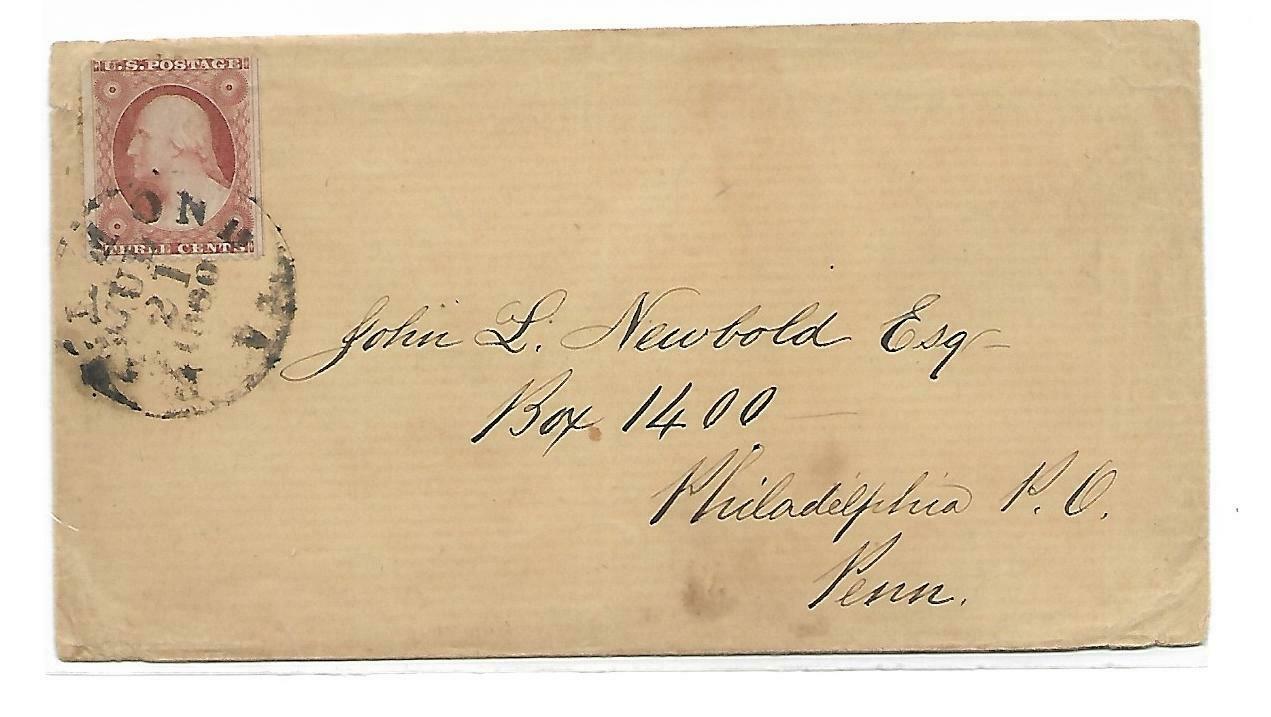 U.S. POSTAGE
THREE CENTS
21
John L. Newbold Esq
Box 1400
Philadelphia P. O.
Penn.